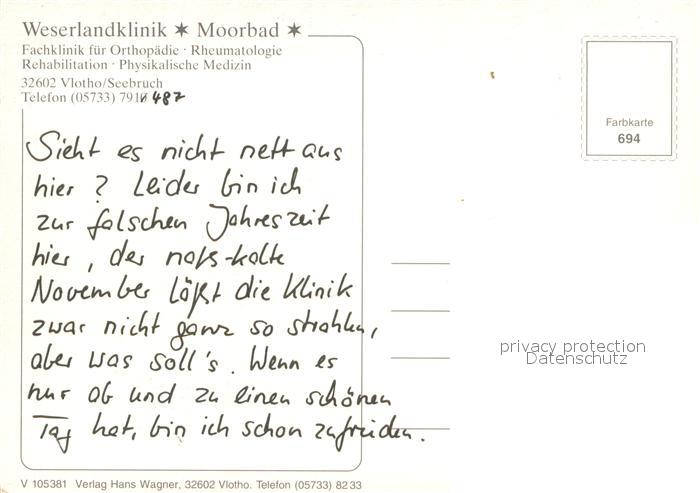 Weserlandklinik ✶ Moorbad ✶
Fachklinik für Orthopädie · Rheumatologie
Rehabilitation · Physikalische Medizin
32602 Vlotho/Seebruch
Telefon (05733) 791 487
Farbkarte
694
Sieht es nicht nett aus
hier? Leider bin ich
zur falschen Jahreszeit
hier, der naß-kalte
November läßt die Klinik
zwar nicht ganz so strahlen,
aber was soll's. Wenn es
nur ab und zu einen schönen
Tag hat, bin ich schon zufrieden.
privacy protection
Datenschutz
V 105381 Verlag Hans Wagner, 32602 Vlotho. Telefon (05733) 82 33